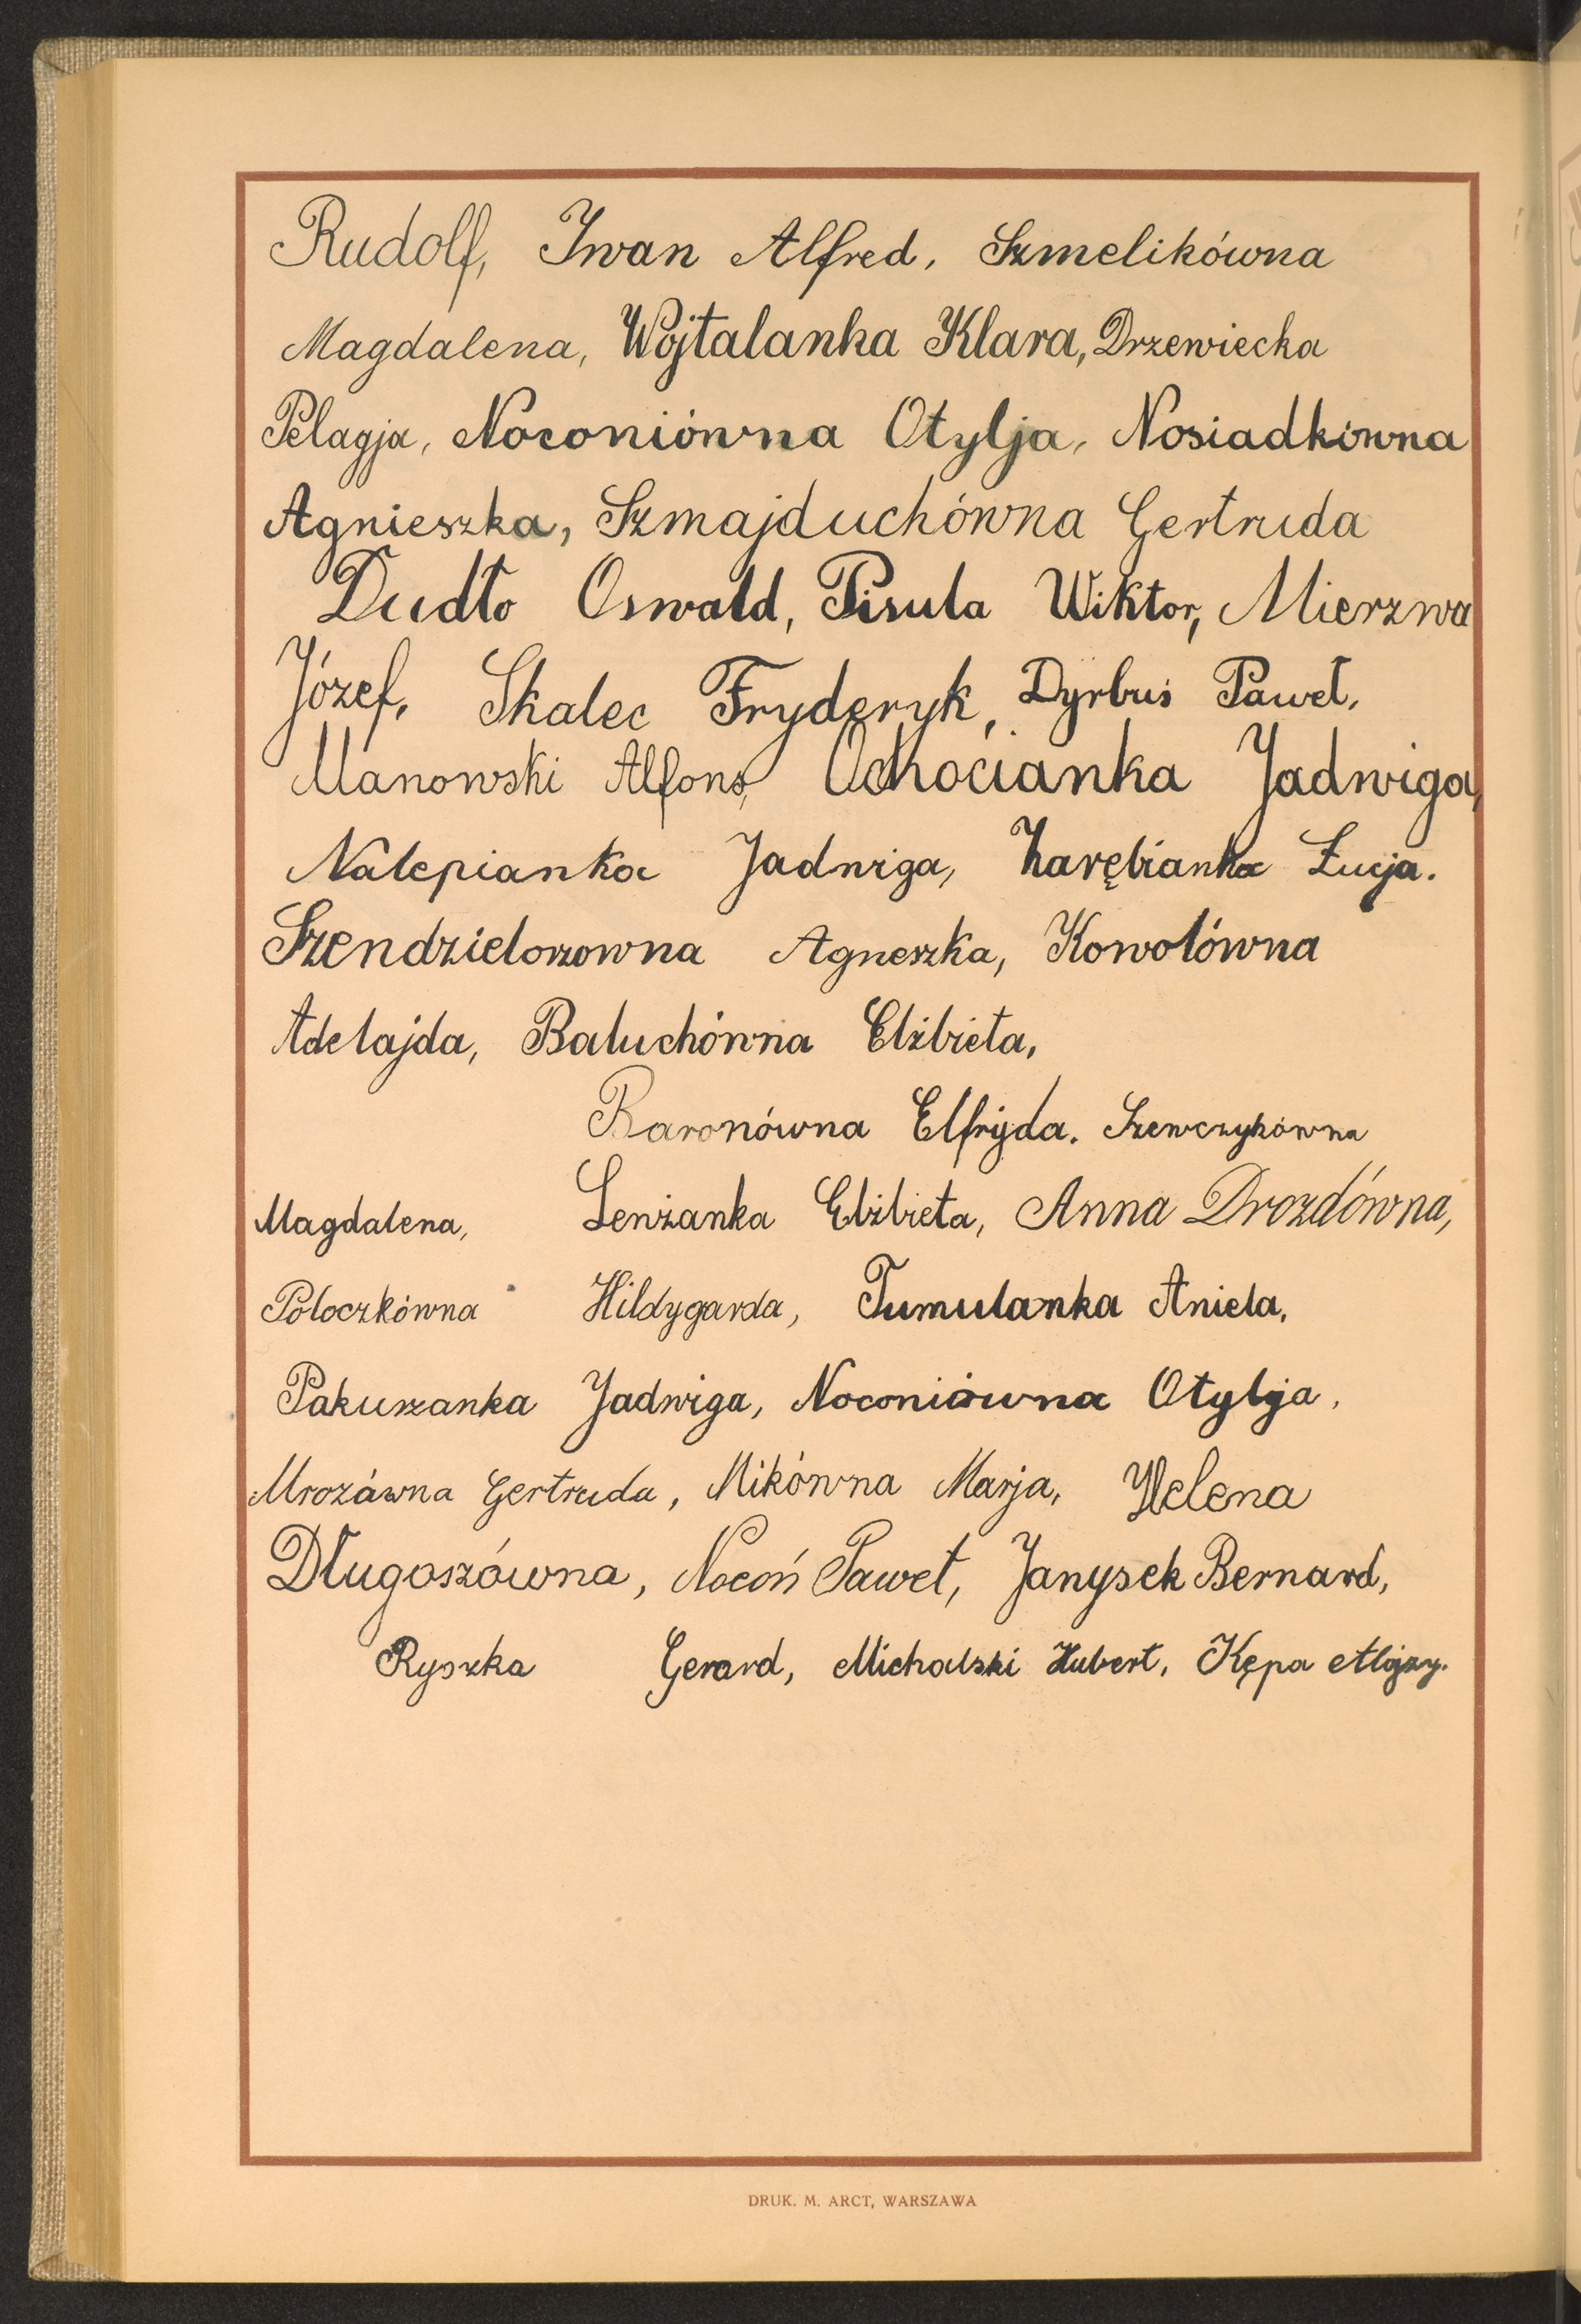 Rudolf, Iwan Alfred, Szmelikówna
Magdalena, Wojtalanka Klara, Drzewiecka
Pelagja, Noconiówna Otylja, Nosiadkówna
Agnieszka, Szmajduchówna Gertruda
Dudło Oswald, Pisula Wiktor, Mierzwa
Józef, Skalec Fryderyk, Dyrbuś Paweł,
Manowski Alfons, Ochocianka Jadwiga,
Nalepianka Jadwiga, Zarębianka Łucja.
Szendzielorzowna Agneszka, Kowolówna
Adelajda, Baluchówna Elżbieta,
Baronówna Elfryda. Szewczykówna
Magdalena, Lenżanka Elżbieta, Anna Drozdówna,
Poloczkówna Hildygarda, Tumulanka Aniela,
Pakuszanka Jadwiga, Noconiówna Otylja,
Mrozówna Gertruda, Mikówna Marja, Helena
Długoszówna, Nocoń Paweł, Janysek Bernard,
Ryszka Gerard, Michalski Hubert, Kępa Alojzy.
DRUK. M. ARCT, WARSZAWA